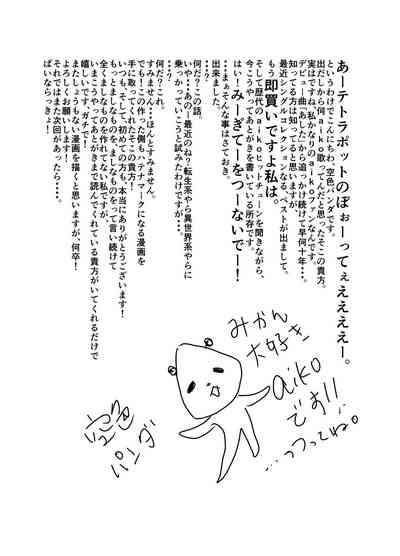 あーテトラポットのぼぉーってぇええええー。
というわけでこんにちわ、空色パンダです。
出だしからaiko歌ってんだと思ったそこの貴方、
実はですね、私かなりのaikoファンなんです。
デビュー曲「あした」から追いかけ続けて早何十年・・・。
知ってる方は知ってると思いますが、
最近シングルコレクションなる、ベストが出まして。
もう即買いですよ私は。
そして歴代のaikoヒットチューンを聞きながら、
今こうやってあとがきを書いている所存です。
はい！みーぎてーをつーないでー！
・・・まぁそんな事はさておき、
出来ました。
・・・？
・・・？
何だ？この話。
いや・・・あのー最近のね？転生系やら異世界系やらに
乗っかっていこうと試みたわけですが・・・
・・・？
何だ？これ。
すみません・・・ほんとすみません。
でも！この作った側でさえハテナマークになる漫画を
手に取ってくれたそこの貴方！
いつも、そして、初めての方も本当にありがとうございます！
もっとましなものを、ましなものをって言い続けて
全くましなものを作れてない私ですが、
いまこうやってあとがきまで読んでくれている貴方がいてくれるだけで
嬉しいです。ガチで！
またしょうもない漫画を描くと思いますが、何卒！
よろしくお願いします！
それではまた次回があったら・・・。
ばいならっきょ！
みかん
大好き
aikoです!!
…っつってね。
空色
パンダ